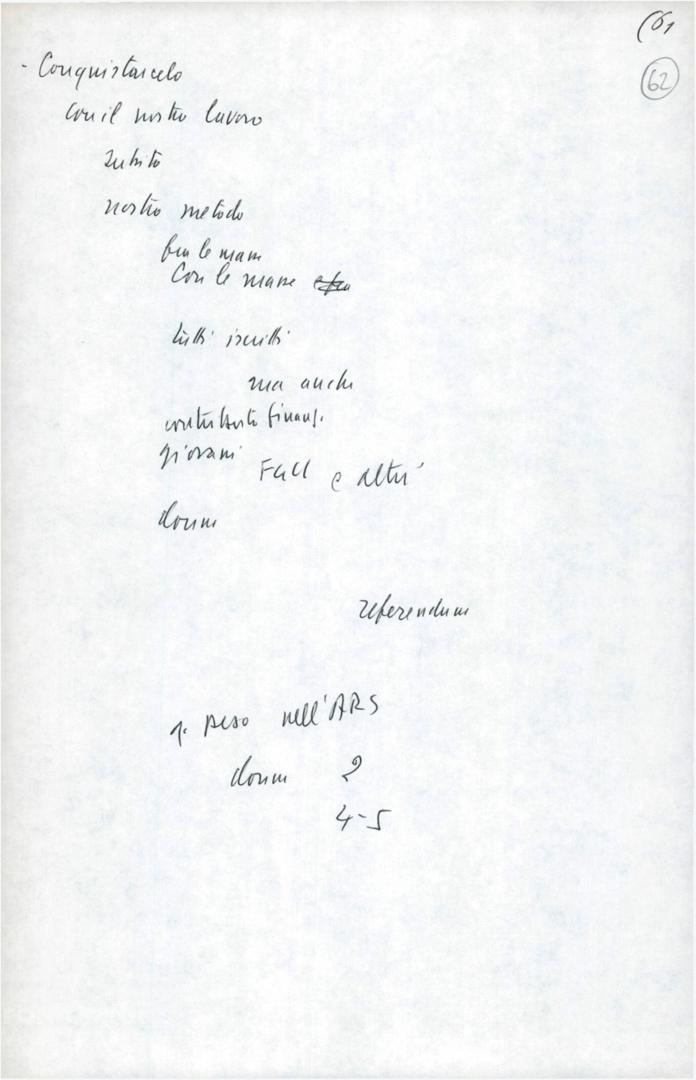 (61
62
- Conquistarcelo
con il nostro lavoro
subito
nostro metodo
fra le mani
Con le masse
tutti iscritti
ma anche
contributo finanz.
giovani
FGCI e altri
donne
referendum
peso nell'ARS
donne 2
4-5